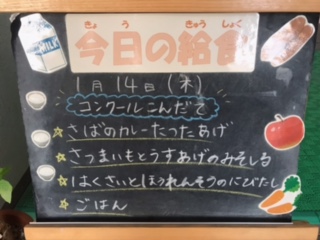 きょう きゅうしょく
今日の給食
MILK
1月14日(木)
コンクールこんだて
☆さばのカレーたつたあげ
☆さつまいもとうすあげのみそしる
☆はくさいとほうれんそうのにびたし
☆ごはん